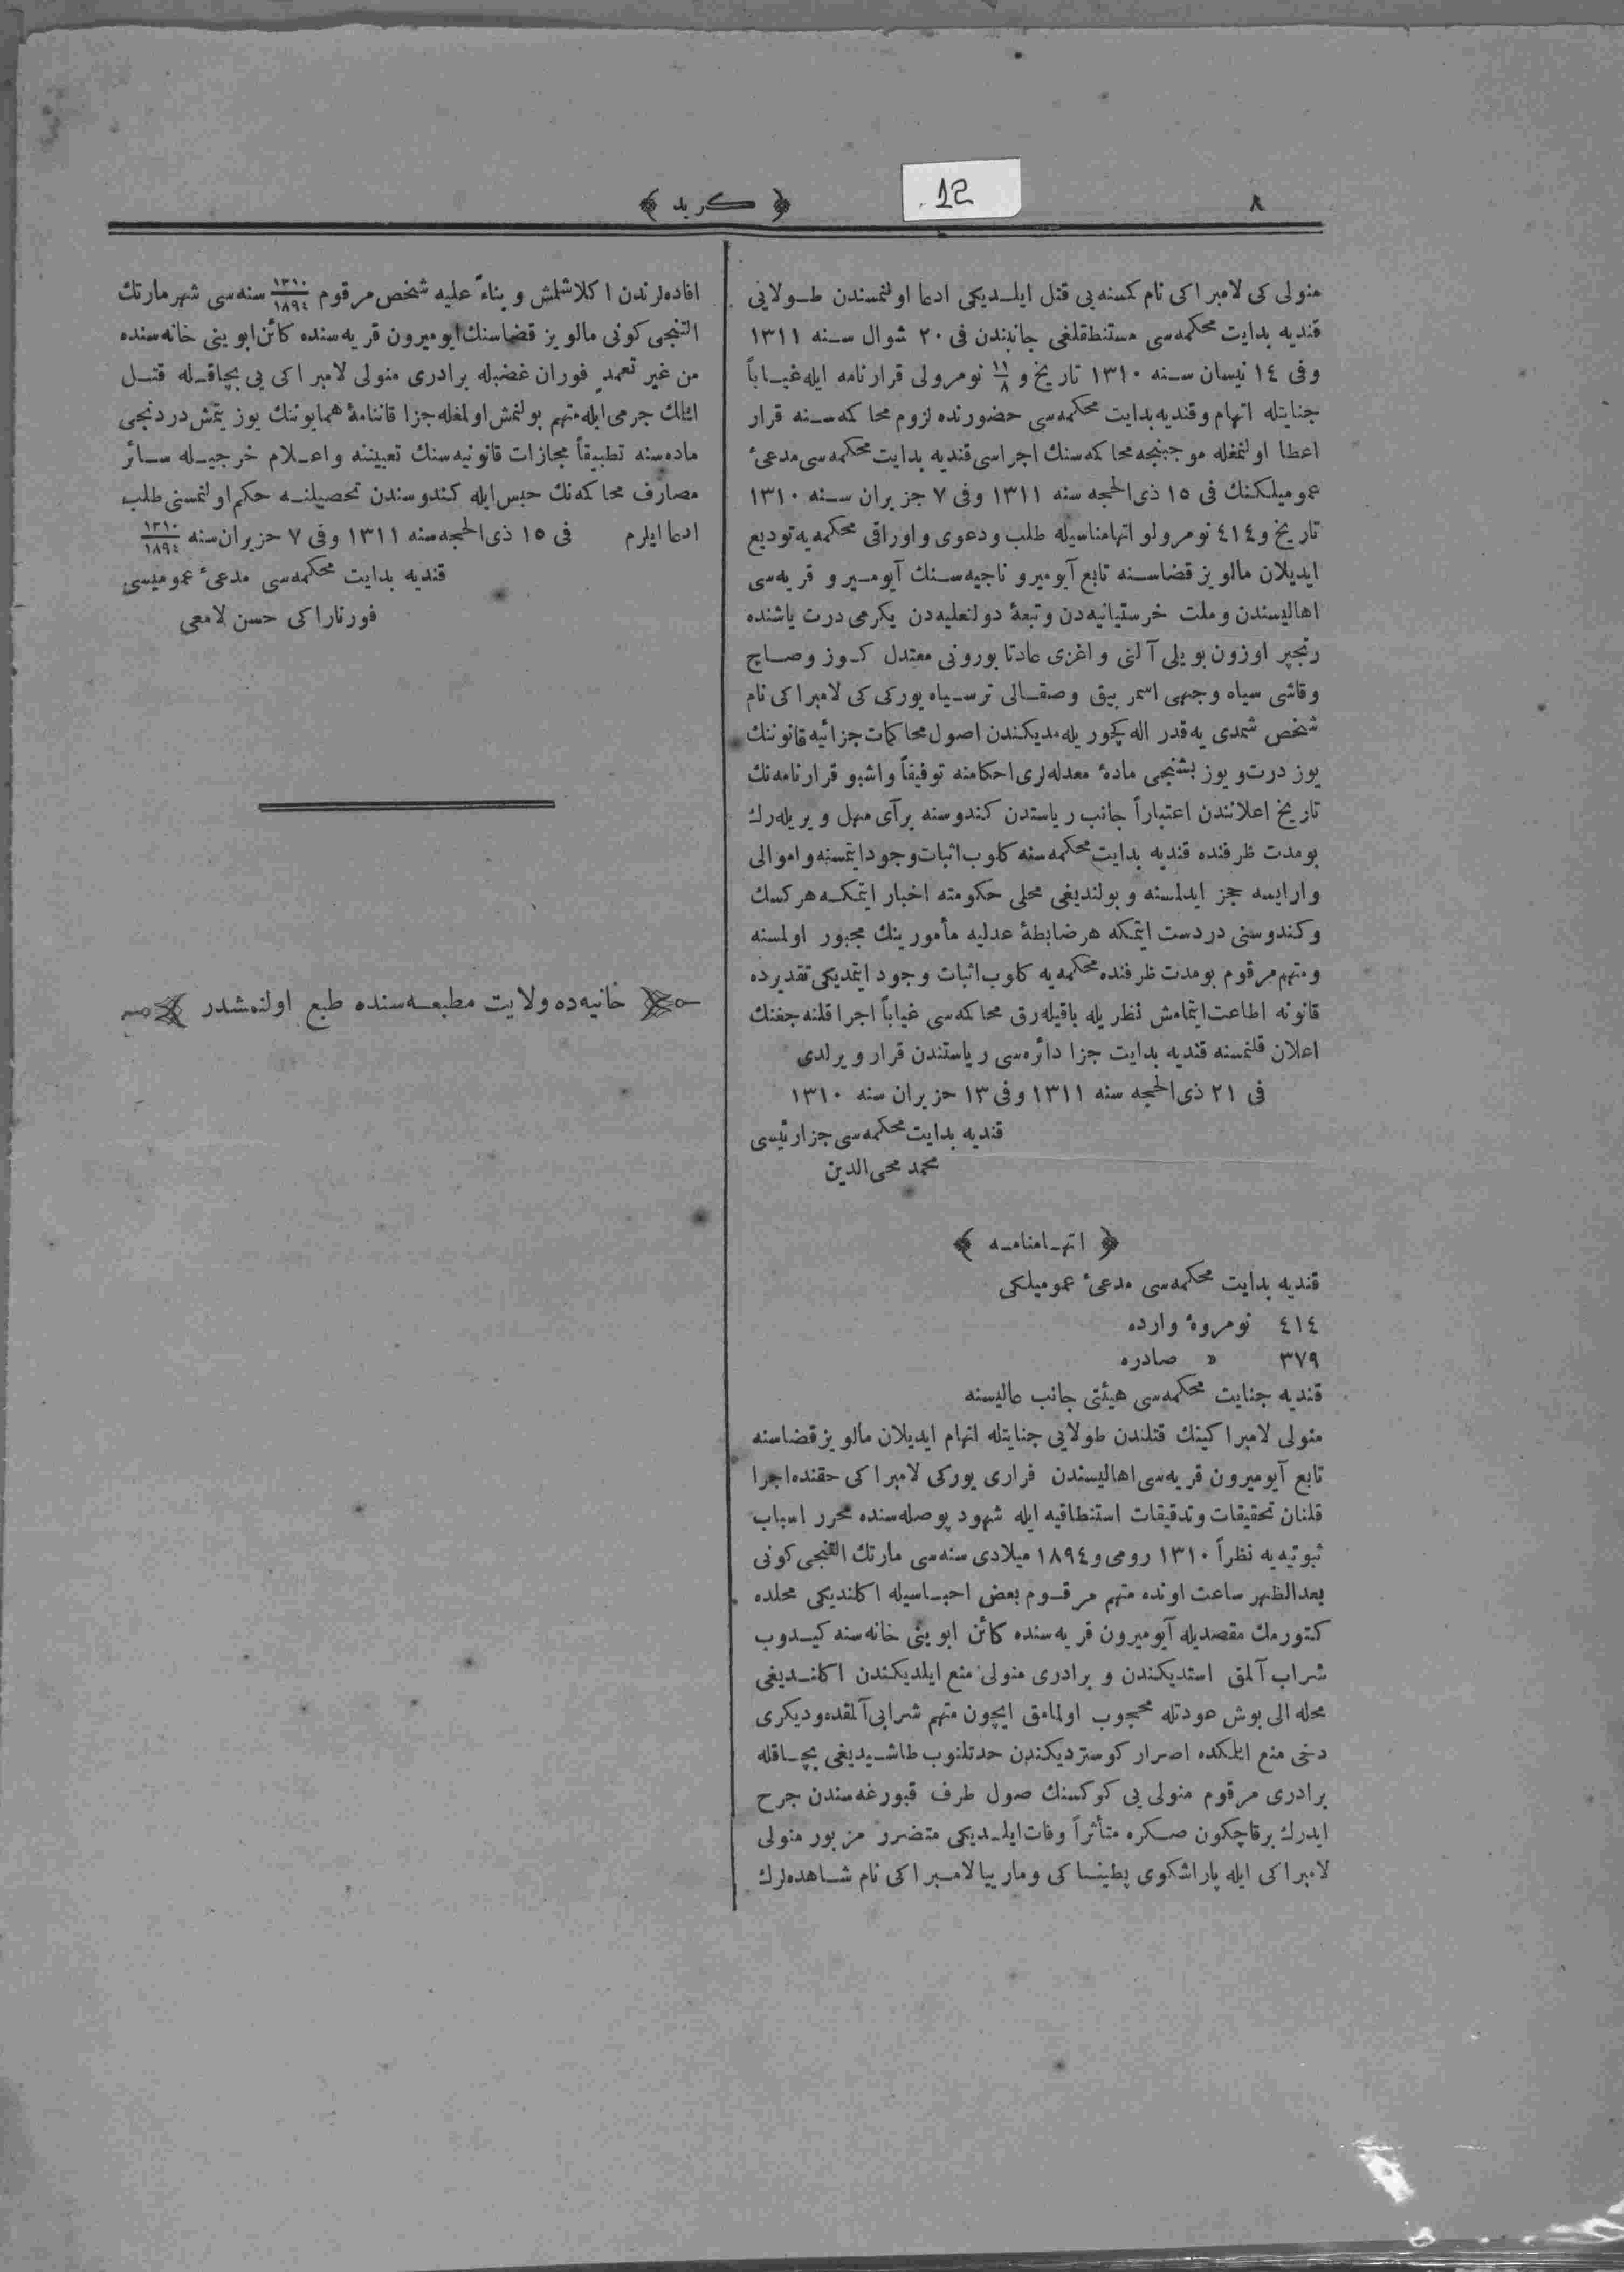 ٨
12
﴿ كريد ﴾
منولى كى لامبراكى نام كمسنه‌يى قتل ايلديكى ادعا اولنمسندن طولايى
قنديه بدايت محكمه‌سى مستنطقلغى جانبندن فى ٢٠ شوال سنه ١٣١١
وفى ١٤ نيسان سنه ١٣١٠ تاريخ و ١١/٨ نومرولى قرارنامه ايله غياباً
جنايتله اتهام وقنديه بدايت محكمه‌سى حضورنده لزوم محاكمه‌سنه قرار
اعطا اولنمغله موجبنجه محاكمه‌سنك اجراسى قنديه بدايت محكمه‌سى مدعىٔ
عموميلكنك فى ١٥ ذى‌الحجه سنه ١٣١١ وفى ٧ جزيران سنه ١٣١٠
تاريخ و ٤١٤ نومرولو اتهامناسيله طلب ودعوى واوراقى محكمه‌يه توديع
ايديلان مالويز قضاسنه تابع آيوميرو ناحيه‌سنك آيوميرو قريه‌سى
اهاليسندن وملت خرستيانيه‌دن وتبعهٔ دولتعليه‌دن يكرمى درت ياشنده
رنجبر اوزون بويلى آلنى واغزى عادتا بورونى معتدل كوز وصاچ
وقاشى سياه وجهى اسمر بيق وصقالى ترسياه يوركى كى لامبراكى نام
شخص شمدى يه‌قدر اله كچوريله‌مديكندن اصول محاكمات جزائيه قانوننك
يوز درت‌و يوز بشنجى مادهٔ معدله‌لرى احكامنه توفيقاً واشبو قرارنامه‌نك
تاريخ اعلانندن اعتباراً جانب رياستدن كندوسنه برآى مهل ويريله‌رك
بومدت ظرفنده قنديه بدايت محكمه‌سنه كلوب اثبات‌وجود ايتمسنه واموالى
وارايسه حجز ايدلمسنه وبولنديغى محلى حكومته اخبار ايتمكه هركسك
وكندوسنى دردست ايتمكه هرضابطهٔ عدليه مأمورينك مجبور اولمسنه
ومتهم مرقوم بومدت ظرفنده محكمه‌يه كلوب اثبات وجود ايتمديكى تقديرده
قانونه اطاعت ايتمامش نظريله باقيله‌رق محاكمه‌سى غياباً اجرا قلنه‌جغنك
اعلان قلنمسنه قنديه بدايت جزا دائره‌سى رياستندن قرار ويرلدى
فى ٢١ ذى‌الحجه سنه ١٣١١ وفى ١٣ حزيران سنه ١٣١٠
قنديه بدايت محكمه‌سى جزا رئيسى
محمد محى‌الدين
﴿ اتهامنامه ﴾
قنديه بدايت محكمه‌سى مدعىٔ عموميلكى
٤١٤ نومروهٔ وارده
٣٧٩ » صادره
قنديه جنايت محكمه‌سى هيئتى جانب عاليسنه
منولى لامبراكينك قتلندن طولايى جنايتله اتهام ايديلان مالويز قضاسنه
تابع آيوميرون قريه‌سى اهاليسندن فرارى يوركى لامبراكى حقنده اجرا
قلنان تحقيقات وتدقيقات استنطاقيه ايله شهود پوصله‌سنده محرر اسباب
ثبوتيه‌يه نظراً ١٣١٠ رومى و ١٨٩٤ ميلادى سنه‌سى مارتك التنجى كونى
بعدالظهر ساعت اونده متهم مرقوم بعض احباسيله اكلنديكى محلده
كتورمك مقصديله آيوميرون قريه‌سنده كائن ابوينى خانه‌سنه كيدوب
شراب آلمق استديكندن و برادرى منولى منع ايلديكندن اكلنديغى
محله الى بوش عودتله محجوب اولمامق ايچون متهم شرابى آلمقده وديكرى
دخى منع ايتمكده اصرار كوسترديكندن حدتلنوب طاشيديغى بچاقله
برادرى مرقوم منولى يى كوكسنك صول طرف قبورغه‌سندن جرح
ايدرك برقاچكون صكره متأثراً وفات ايلديكى متضرر مزبور منولى
لامبراكى ايله پاراشكوى پطينساكى ومارييا لامبراكى نام شاهده‌لرك
افاده‌لرندن اكلاشلمش وبناءً عليه شخص مرقوم ١٣١٠/١٨٩٤ سنه‌سى شهر مارتك
التنجى كونى مالويز قضاسنك ايوميرون قريه‌سنده كائن ابوينى خانه‌سنده
من غير تعمدٍ فوران غضبله برادرى منولى لامبراكى يى بچاقله قتل
ايتمك جرمى ايله متهم بولنمش اولمغله جزا قاننامهٔ همايوننك يوز يتمش دردنجى
ماده‌سنه تطبيقاً مجازات قانونيه‌سنك تعييننه واعلام خرجيله سائر
مصارف محاكمه‌نك حبس ايله كندوسندن تحصيلنه حكم اولنمسنى طلب
ادعا ايلرم فى ١٥ ذى‌الحجه سنه ١٣١١ وفى ٧ حزيران سنه ١٣١٠/١٨٩٤
قنديه بدايت محكمه‌سى مدعىٔ عموميسى
فورناراكى حسن لامعى
خانيه‌ده ولايت مطبعه‌سنده طبع اولنمشدر